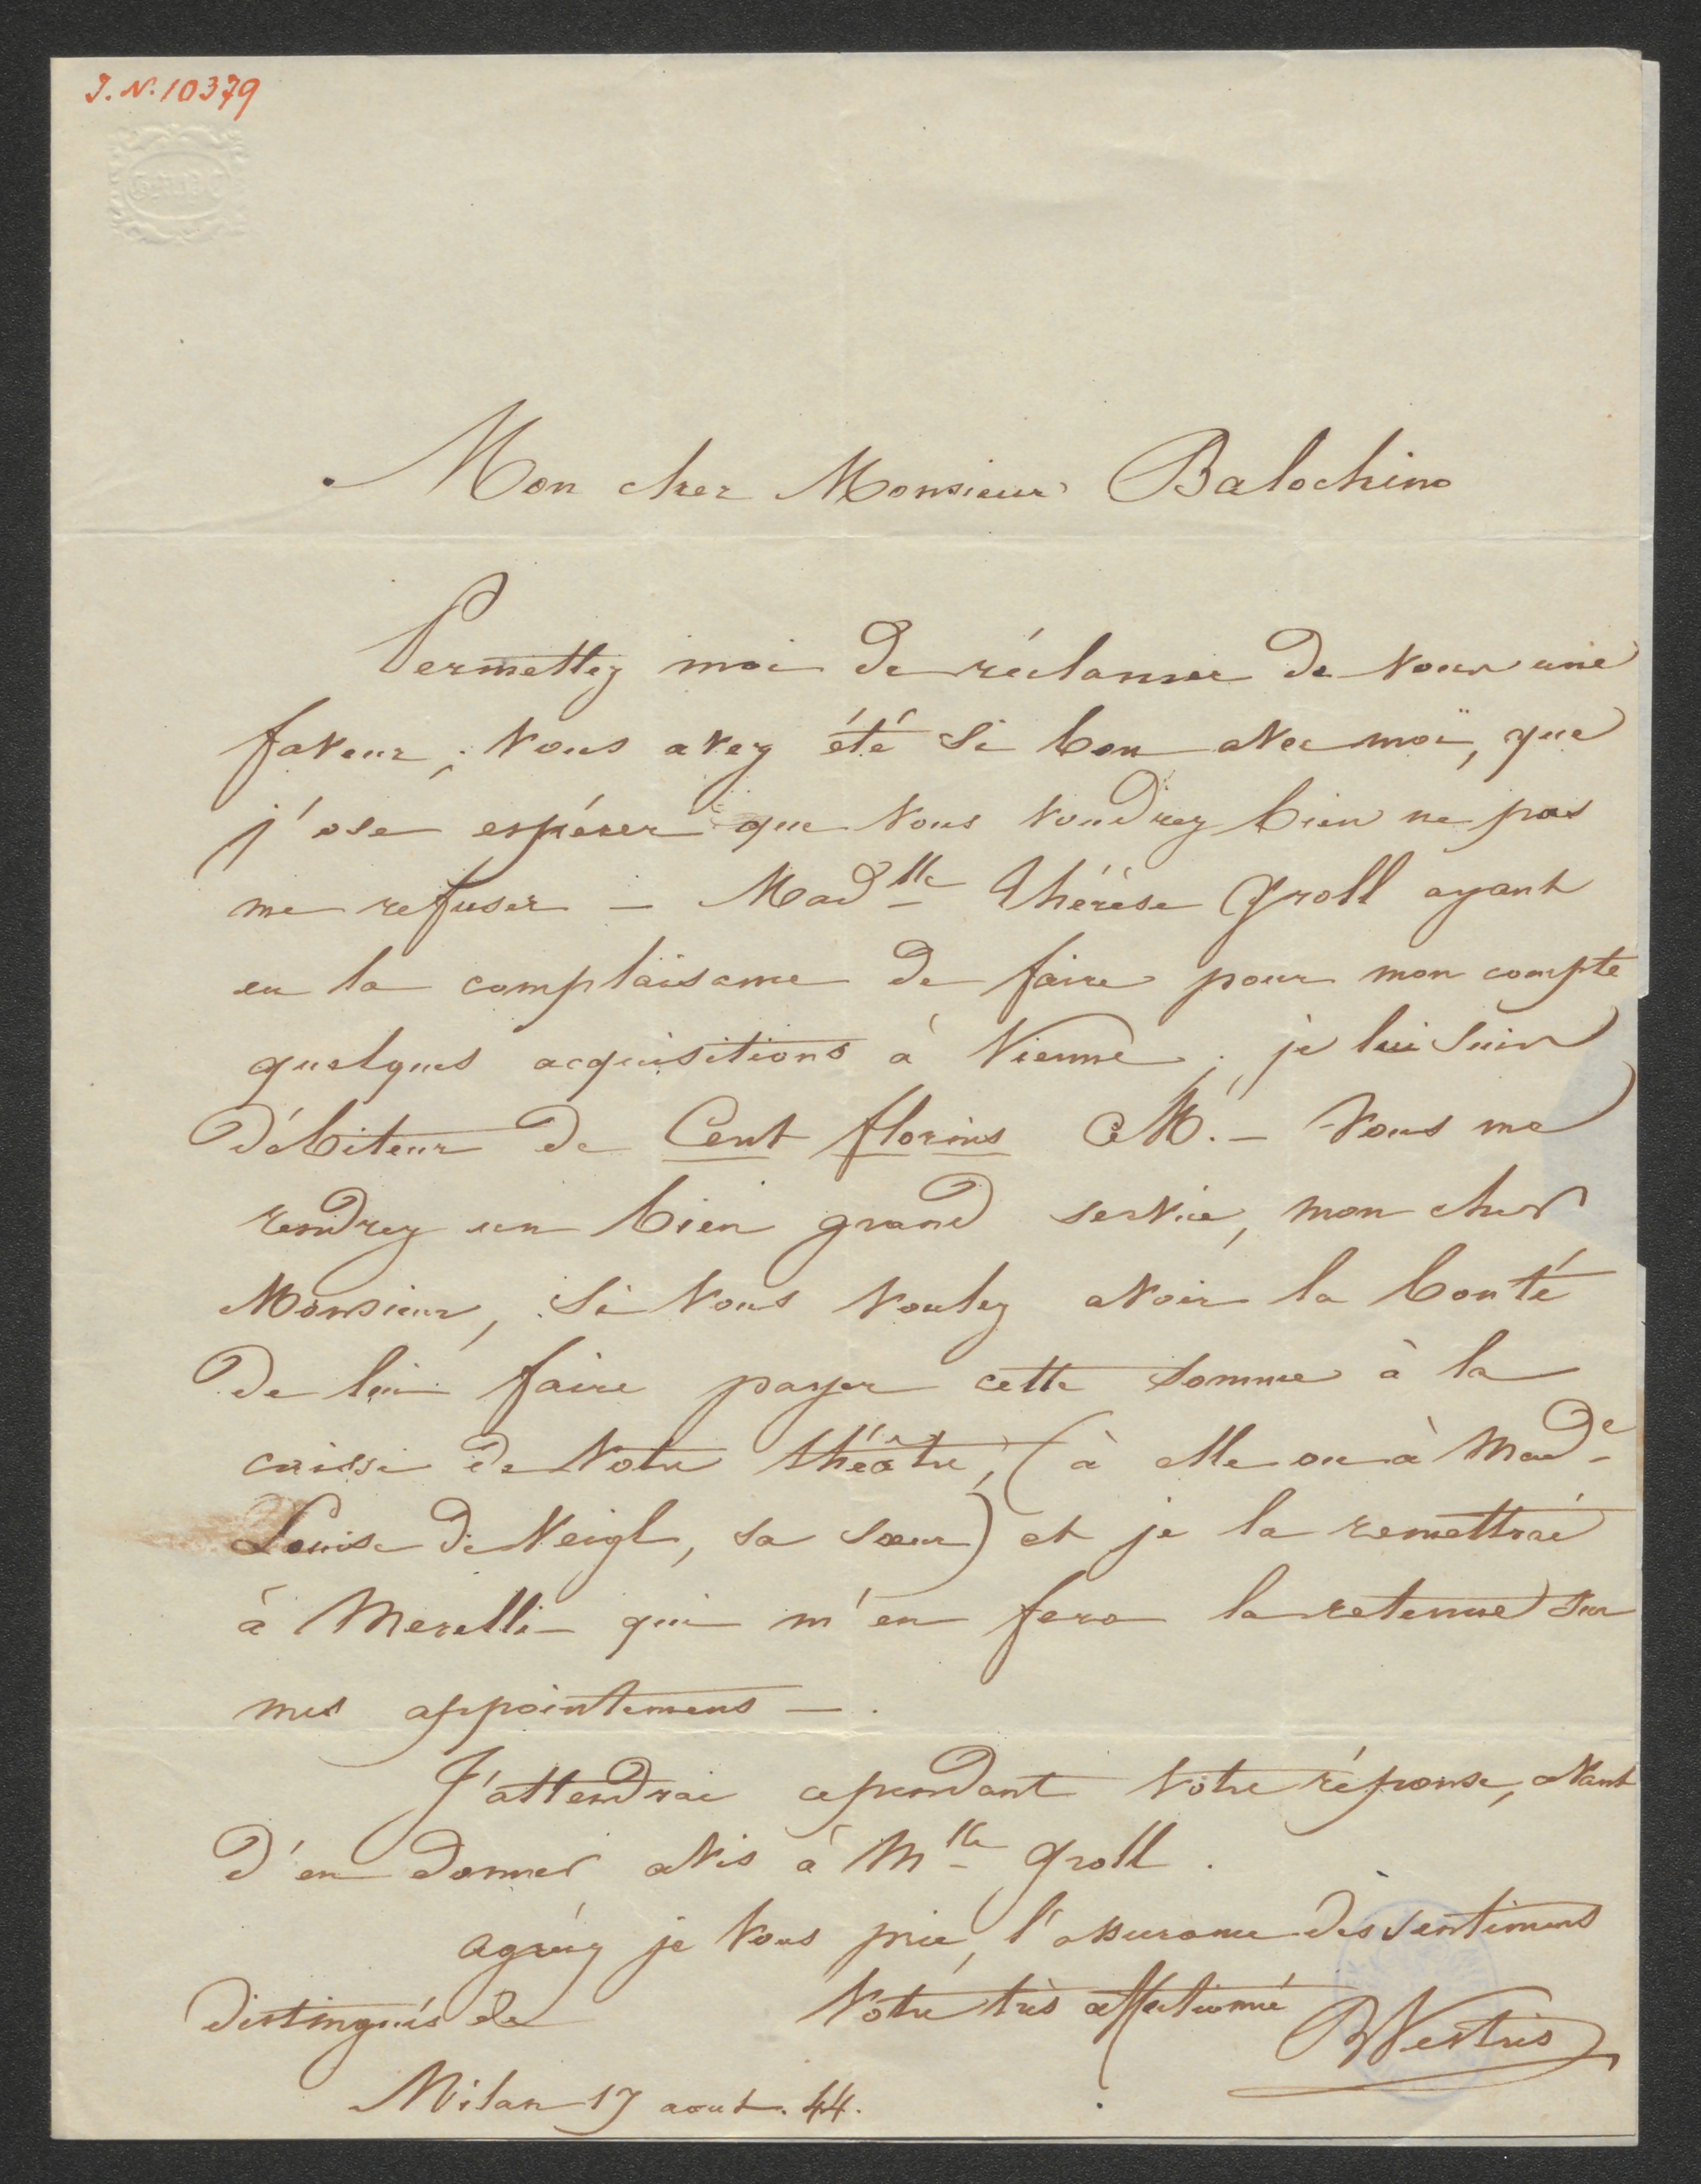 J. N. 10379
Mon cher Monsieur Balochino
Permettez moi de réclamer de vous une
faveur; vous avez été si bon avec moi, que
j'ose espérer que vous voudrez bien ne pas
me refuser – Mad^lle Thérèse Groll ayant
eu la complaisance de faire pour mon compte
quelques acquisitions à Vienne; je lui suis
débiteur de Cent florins CM. – Vous me
rendrez un bien grand service, mon cher
Monsieur, si vous voulez avoir la bonté
de lui faire payer cette somme à la
caisse de votre théâtre, (à elle ou à Mad^e
Louise de Veigl, sa sœur) et je la remettrai
à Merelli – qui m'en fera la retenue sur
mes appointemens –.
J'attendrai cependant votre réponse, avant
d'en donner avis à M^lle Groll.
agréez je vous prie, l'assurance des sentimens
distingués de Votre très affectionné
BVestris
Milan 17 aout. 44.